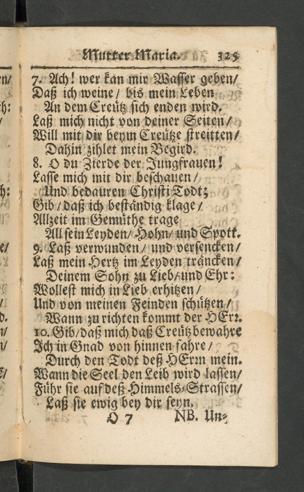 Mutter Maria. 325
7. Ach! wer kan mir Wasser geben/
Daß ich weine/ bis mein Leben
An dem Creütz sich enden wird.
Laß mich nicht von deiner Seiten/
Will mit dir beym Creütze streitten/
Dahin zihlet mein Begird.
8. O du Zierde der Jungfrauen!
Lasse mich mit dir beschauen/
Und bedauren Christi Todt;
Gib/ daß ich beständig klage/
Allzeit im Gemüthe trage
All sein Leyden/ Hohn/ und Spott.
9. Laß verwunden/ und versencken/
Laß mein Hertz im Leyden träncken/
Deinem Sohn zu Lieb/ und Ehr:
Wollest mich in Lieb erhitzen/
Und von meinen Feinden schützen/
Wann zu richten kommt der HErr.
10. Gib/ daß mich daß Creütz bewahre
Ich in Gnad von hinnen fahre/
Durch den Todt deß HErrn mein.
Wann die Seel den Leib wird lassen/
Führ sie auf deß Himmels-Strassen/
Laß sie ewig bey dir seyn.
O 7 NB. Un-